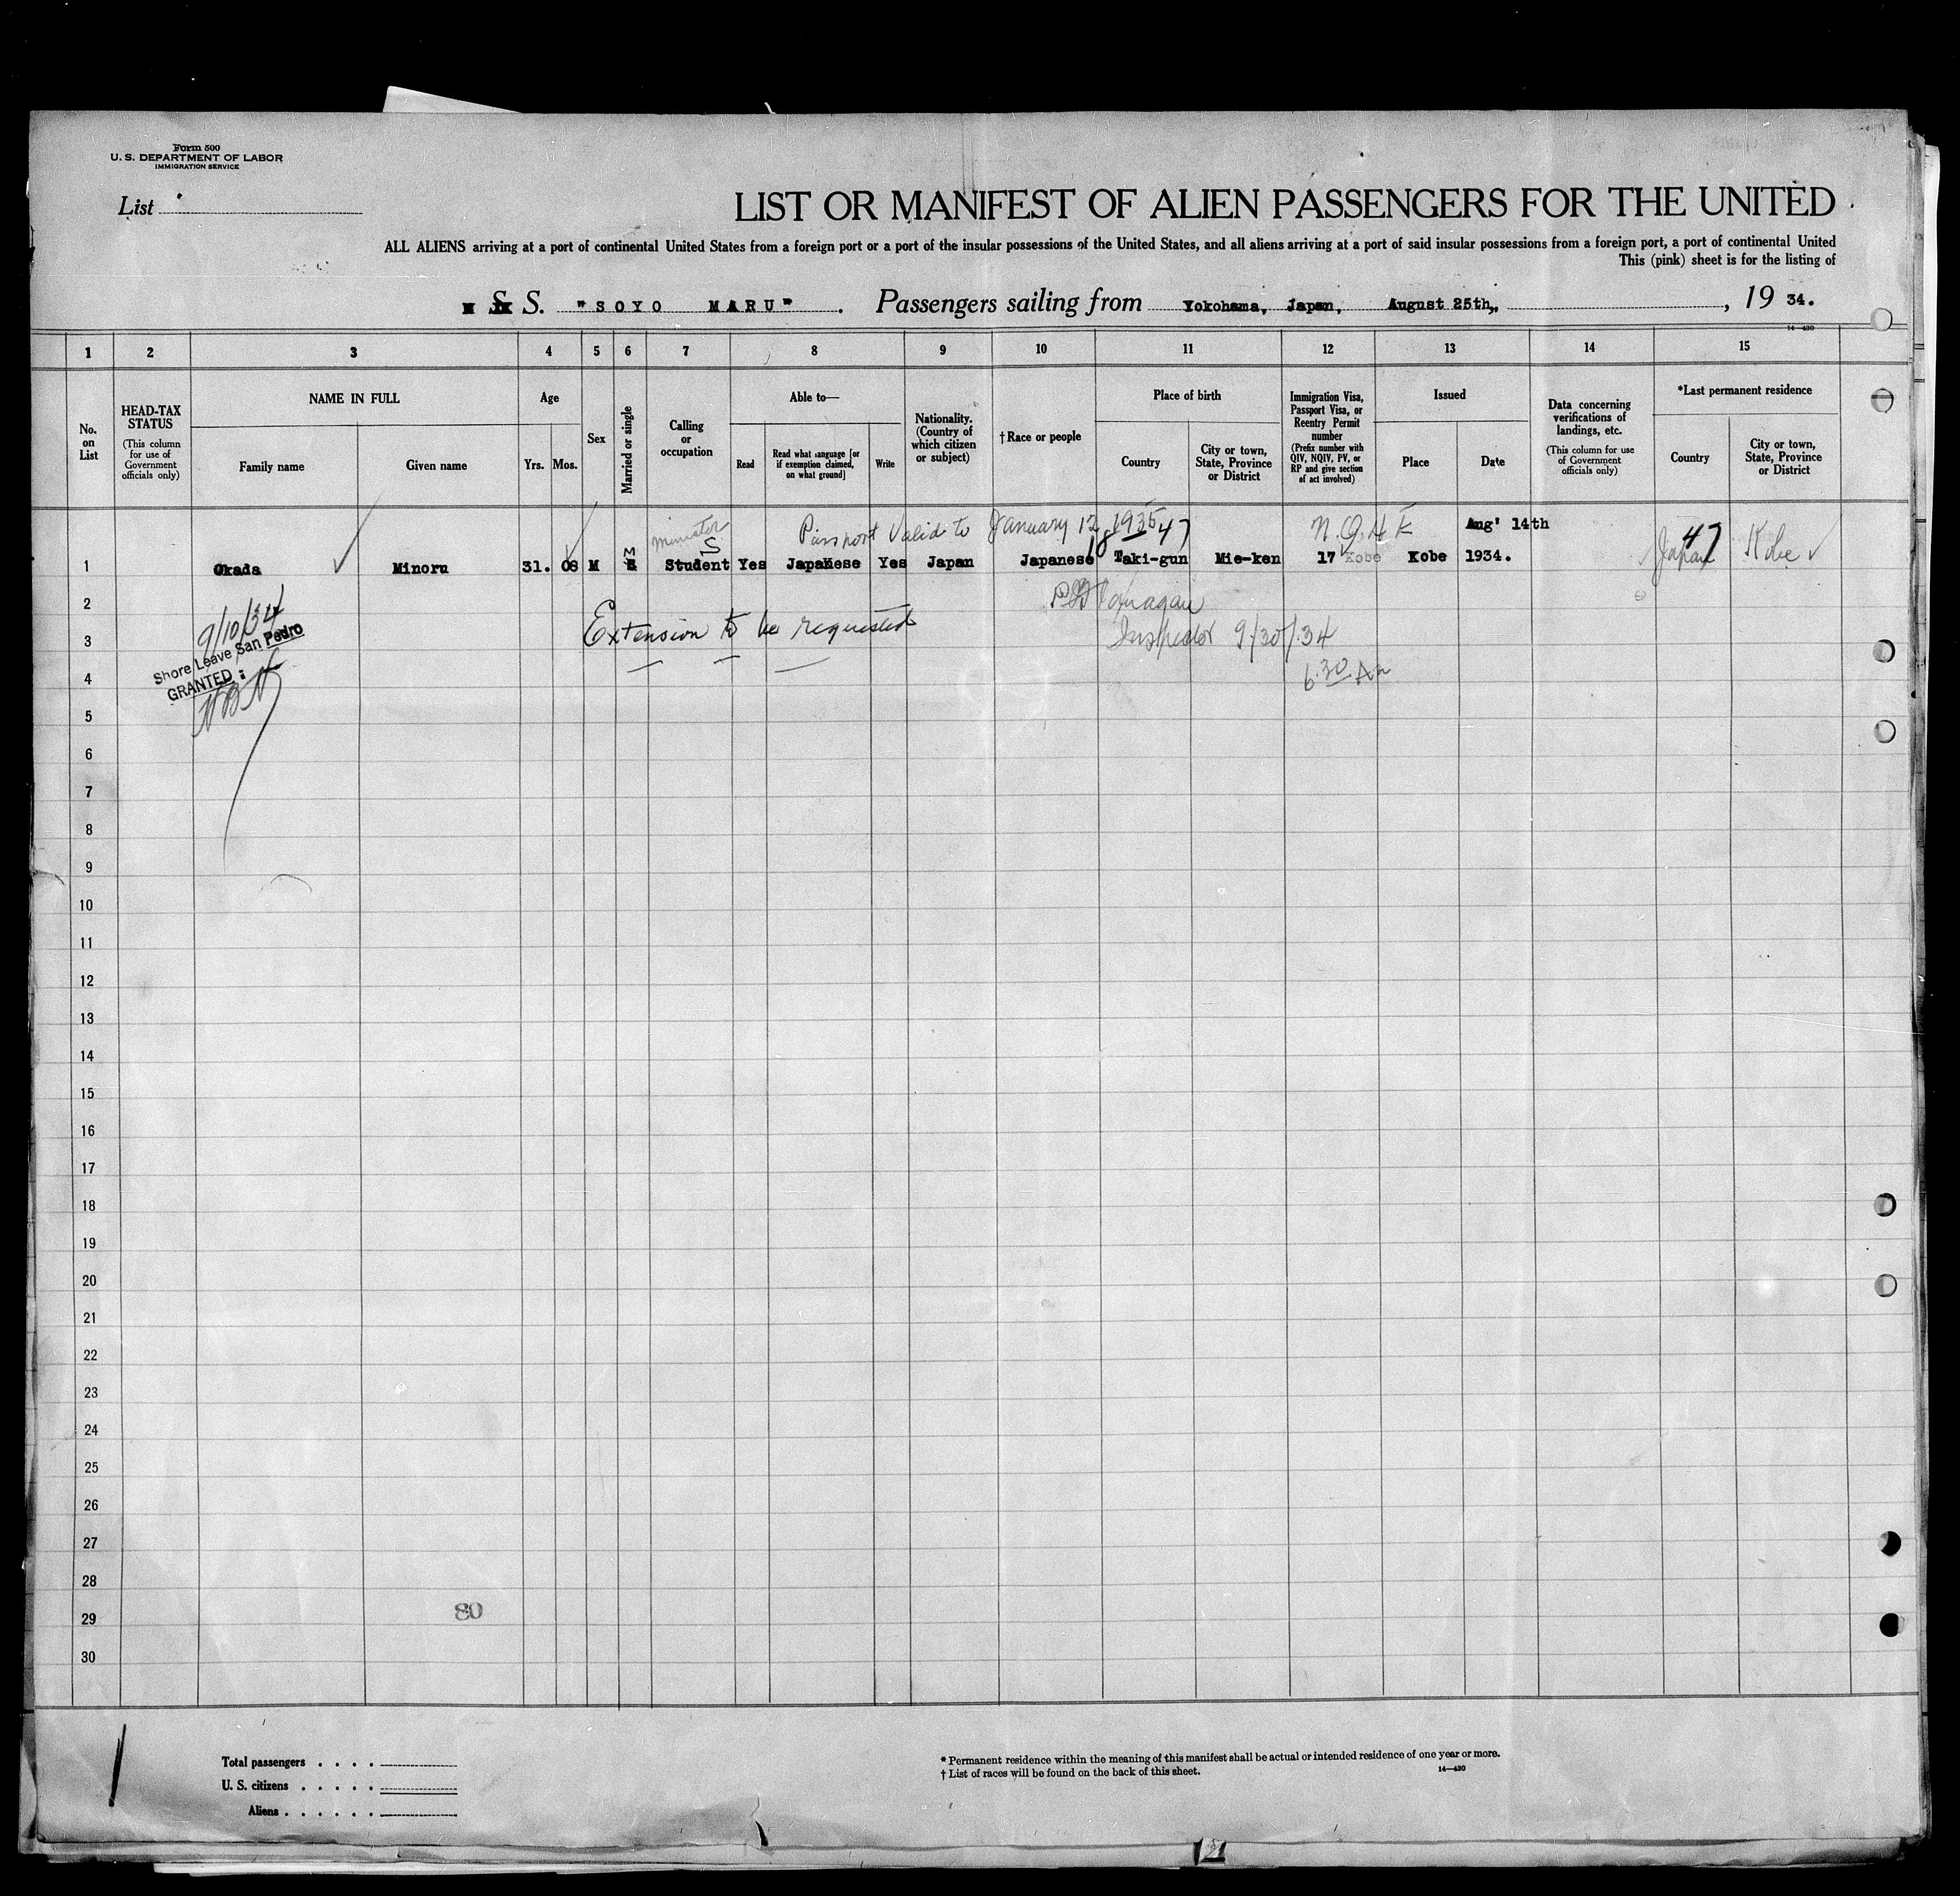 Form 500
U. S. DEPARTMENT OF LABOR
IMMIGRATION SERVICE
List
LIST OR MANIFEST OF ALIEN PASSENGERS FOR THE UNITED
ALL ALIENS arriving at a port of continental United States from a foreign port or a port of the insular possessions of the United States, and all aliens arriving at a port of said insular possessions from a foreign port, a port of continental United
This (pink) sheet is for the listing of
S. "SOYO MARU". Passengers sailing from Yokohama, Japan, August 25th,, , 19 34.
14—430
1 2 3 4 5 6 7 8 9 10 11 12 13 14 15
No. on List
HEAD-TAX STATUS
(This column for use of Government officials only)
NAME IN FULL
Family name
Given name
Age
Yrs.
Mos.
Sex
Married or single
Calling or occupation
Able to—
Read
Read what language [or if exemption claimed, on what ground]
Write
Nationality. (Country of which citizen or subject)
†Race or people
Place of birth
Country
City or town, State, Province or District
Immigration Visa, Passport Visa, or Reentry Permit number
(Prefix number with QIV, NQIV, PV, or RP and give section of act involved)
Issued
Place
Date
Data concerning verifications of landings, etc.
(This column for use of Government officials only)
*Last permanent residence
Country
City or town, State, Province or District
Minister Passport Valid to January 12, 1935 47 Aug' 14th
M S
1 Okada Minoru 31. 08 M Student Yes Japanese Yes Japan Japanese Taki-gun Mie-ken 17 Kobe Kobe 1934. Japan 47 Kobe
2
3 Extension to be requested Inspector 9/30/34
9/10/34
Shore Leave San Pedro
GRANTED:
4 6:30 AM
5
6
7
8
9
10
11
12
13
14
15
16
17
18
19
20
21
22
23
24
25
26
27
28
29
80
30
Total passengers . . . .
U. S. citizens . . . . .
Aliens . . . . . .
* Permanent residence within the meaning of this manifest shall be actual or intended residence of one year or more.
† List of races will be found on the back of this sheet.
14—430